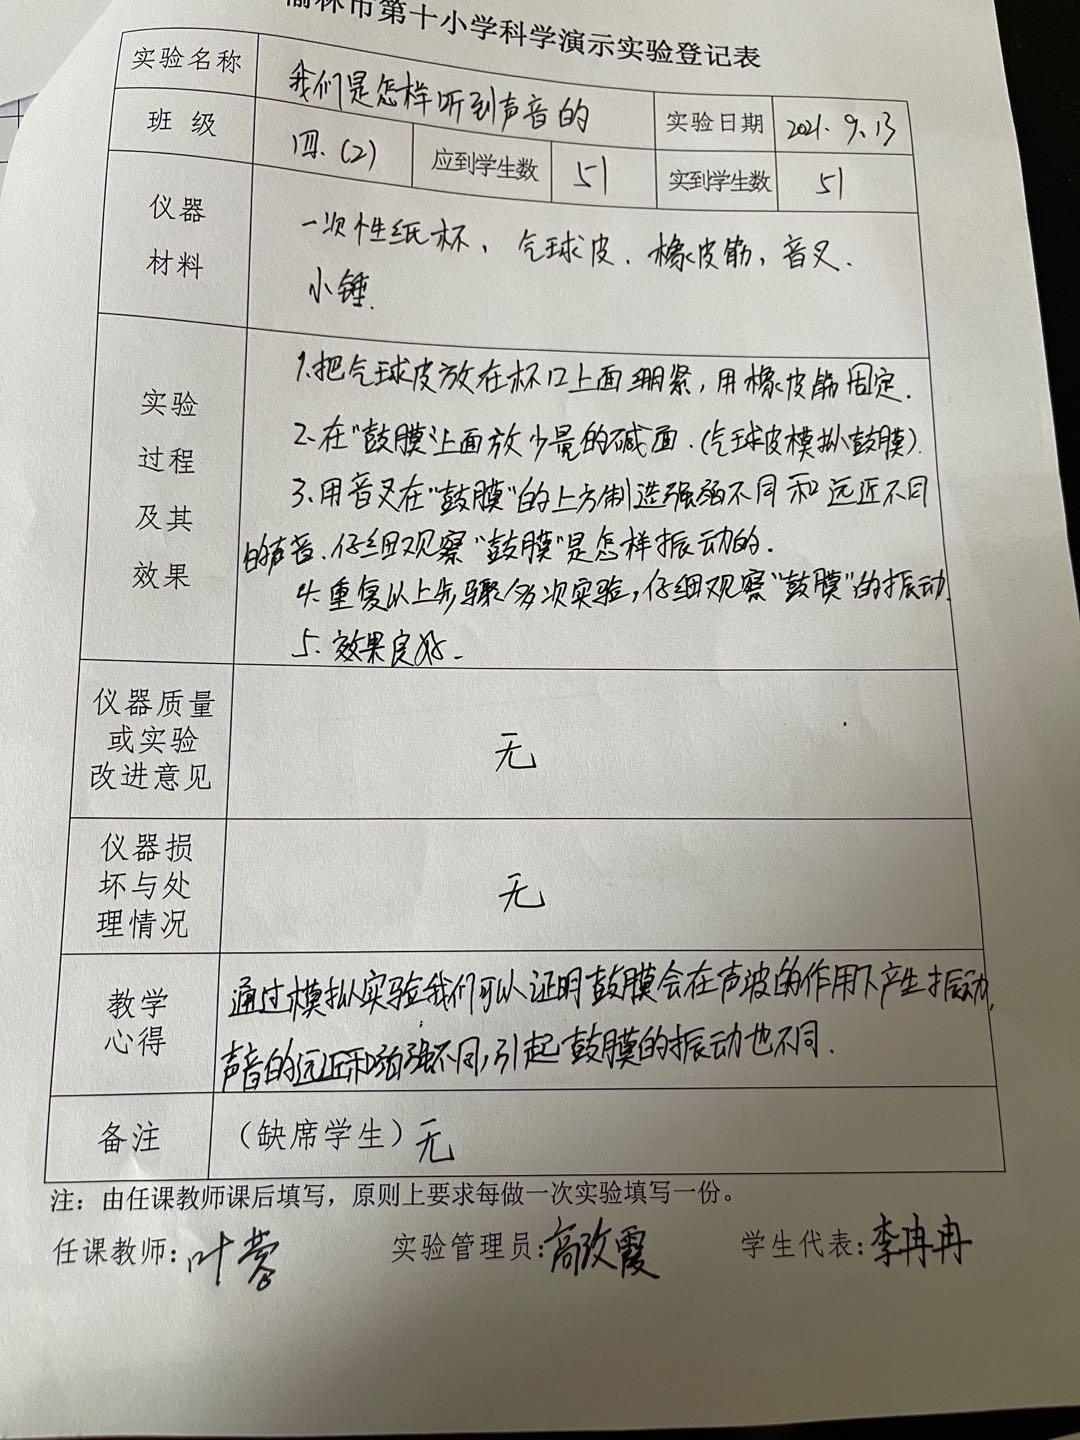 榆林市第十小学科学演示实验登记表
实验名称 我们是怎样听到声音的 实验日期 2021.9.13
班 级 四.(2) 应到学生数 51 实到学生数 51
仪器
材料
一次性纸杯、气球皮、橡皮筋,音叉.
小锤.
实验
过程
及其
效果
1.把气球皮放在杯口上面绷紧,用橡皮筋固定.
2.在"鼓膜"上面放少量的碱面.(气球皮模拟鼓膜).
3.用音叉在"鼓膜"的上方制造强弱不同和远近不同
的声音.仔细观察"鼓膜"是怎样振动的.
4.重复以上步骤多次实验,仔细观察"鼓膜"的振动.
5.效果良好.
仪器质量
或实验
改进意见
无
仪器损
坏与处
理情况
无
教学
心得
通过模拟实验我们可以证明鼓膜会在声波的作用下产生振动,
声音的远近和强不同,引起鼓膜的振动也不同.
备注 (缺席学生)无
注：由任课教师课后填写，原则上要求每做一次实验填写一份。
任课教师:叶蓉 实验管理员:高改霞 学生代表:李冉冉